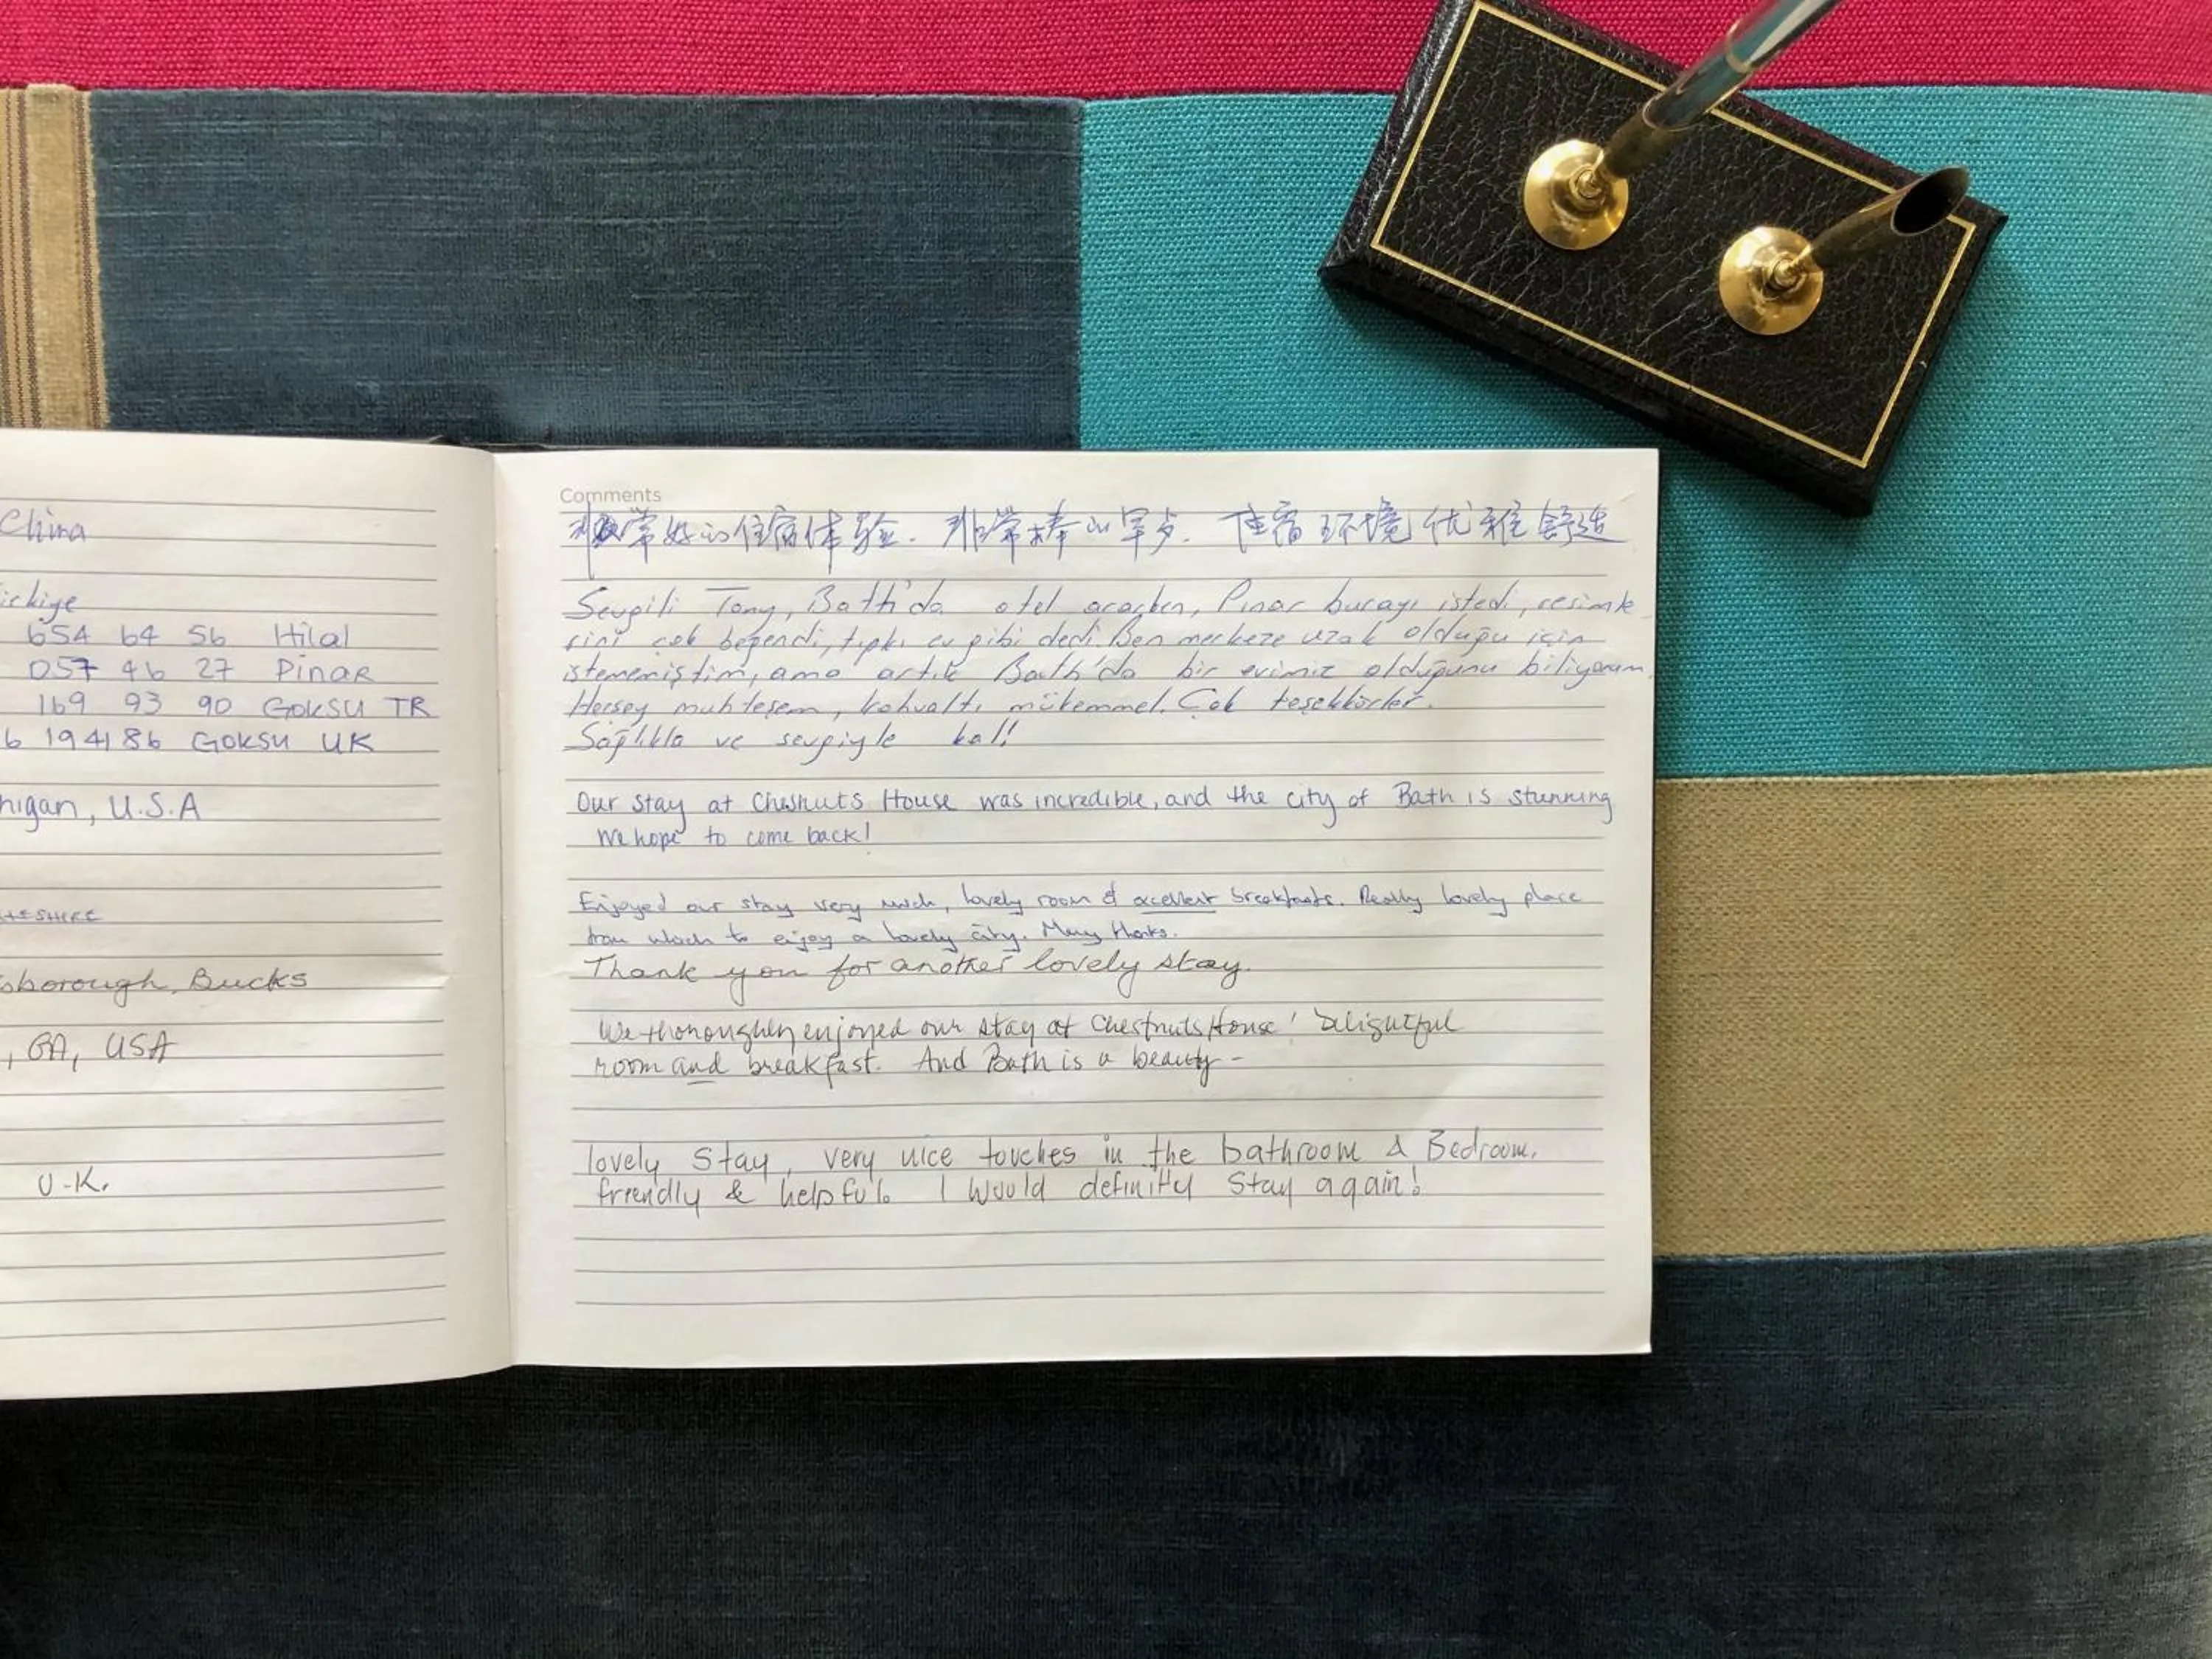 China
654 64 56 Hilal
057 46 27 Pinar
169 93 90 GOKSU TR
6 194186 GOKSU UK
higan, U.S.A
sborough, Bucks
, GA, USA
U.K.
Comments
非常好的住宿体验. 非常棒的早点. 住宿环境优雅舒适
Sevgili Tony, Bath'da otel ararken, Pınar burayı istedi, resimle
rini çok beğendi, tıpkı ev gibi dedi. Ben merkeze uzak olduğu için
istememiştim, ama artık Bath'da bir evimiz olduğunu biliyorum.
Herşey muhteşem, kahvaltı mükemmel. Çok teşekkürler.
Sağlıkla ve sevgiyle kal!
Our stay at Chesnuts House was incredible, and the city of Bath is stunning
We hope to come back!
Enjoyed our stay very much, lovely room & excellent breakfasts. Really lovely place
from which to enjoy a lovely city. Many thanks.
Thank you for another lovely stay.
We thoroughly enjoyed our stay at Chestnuts House! Delightful
room and breakfast. And Bath is a beauty -
lovely stay, very nice touches in the bathroom & Bedroom.
friendly & helpful. I would definitly stay again!